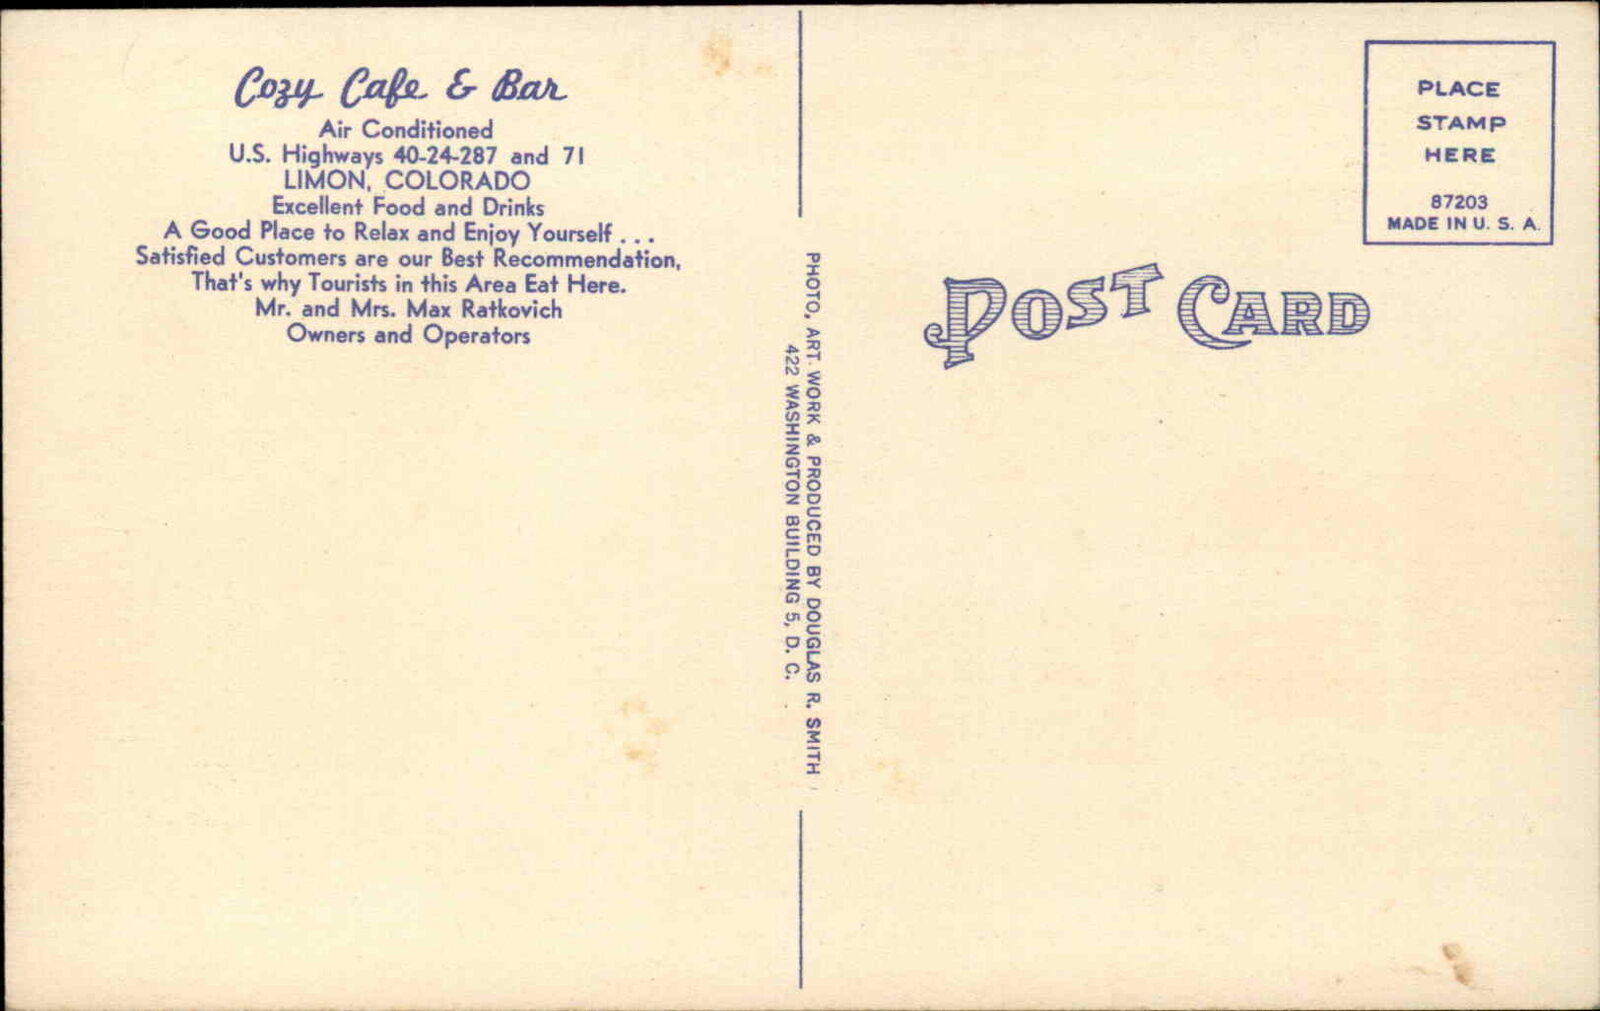 Cozy Cafe & Bar
Air Conditioned
U.S. Highways 40-24-287 and 71
LIMON, COLORADO
Excellent Food and Drinks
A Good Place to Relax and Enjoy Yourself . . .
Satisfied Customers are our Best Recommendation,
That's why Tourists in this Area Eat Here.
Mr. and Mrs. Max Ratkovich
Owners and Operators
PHOTO, ART WORK & PRODUCED BY DOUGLAS R. SMITH
422 WASHINGTON BUILDING 5, D. C.
POST CARD
PLACE
STAMP
HERE
87203
MADE IN U. S. A.